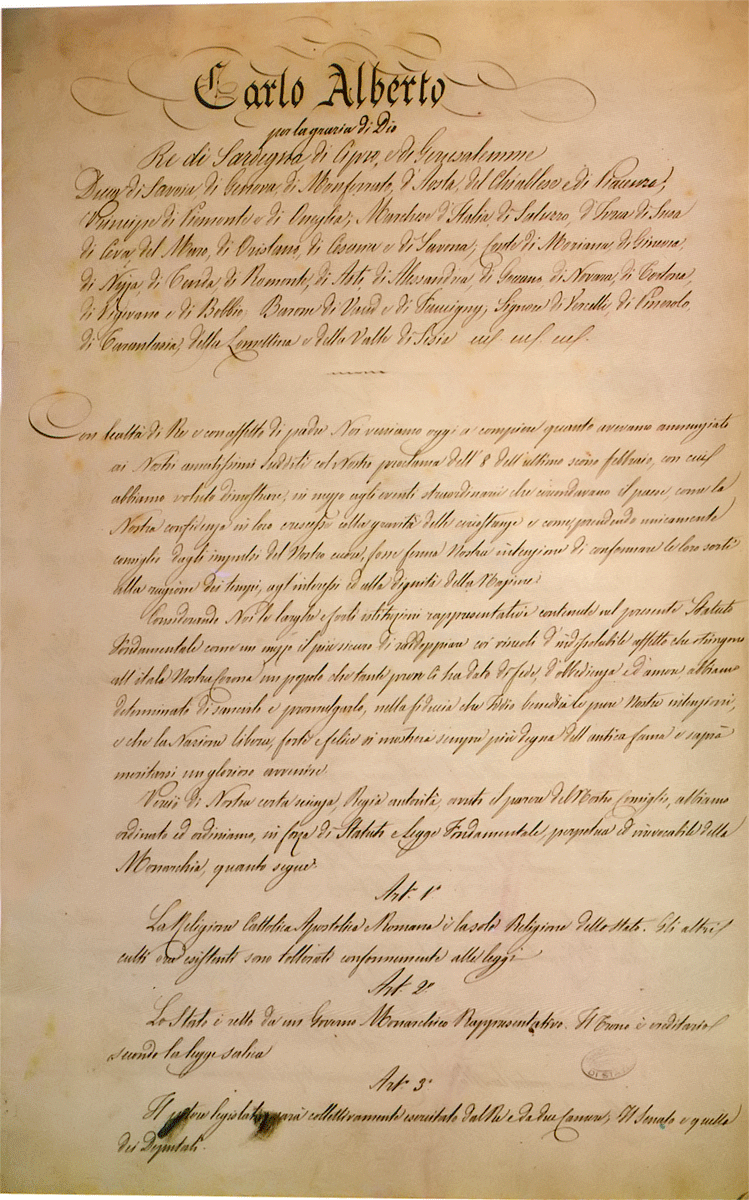 Carlo Alberto
per la grazia di Dio
Re di Sardegna, di Cipro, e di Gerusalemme
Duca di Savoia, di Genova, di Monferrato, d'Aosta, del Chiablese e di Piacenza;
Principe di Piemonte e di Oneglia; Marchese d'Italia, di Saluzzo, d'Ivrea, di Susa
di Ceva, del Maro, di Oristano, di Cesana e di Savona; Conte di Moriana, di Ginevra,
di Nizza, di Tenda, di Romonte, di Asti, di Alessandria, di Goceano, di Novara, di Tortona,
di Vigevano e di Bobbio; Barone di Vaud e di Faucigny; Signore di Vercelli, di Pinerolo,
di Tarantasia, della Lomellina e della Valle di Sesia ecc. ecc. ecc.
Con lealtà di Re e con affetto di padre Noi veniamo oggi a compiere quanto avevamo annunziato
ai Nostri amatissimi sudditi col Nostro proclama dell' 8 dell'ultimo scorso febbraio, con cui
abbiamo voluto dimostrare, in mezzo agli eventi straordinarii che circondavano il paese, come la
Nostra confidenza in loro crescesse colla gravità delle circostanze e come prendendo unicamente
consiglio dagli impulsi del Nostro cuore, fosse ferma Nostra intenzione di conformare le loro sorti
alla ragione dei tempi, agl'interessi ed alla dignità della Nazione.
Considerando Noi le larghe e forti istituzioni rappresentative contenute nel presente Statuto
Fondamentale come un mezzo il più sicuro di raddoppiare coi vincoli d'indissolubile affetto che stringono
all'itala Nostra Corona un popolo che tante prove Ci ha dato di fede, d'obbedienza e d'amore, abbiamo
determinato di sancirlo e promulgarlo, nella fiducia che Iddio benedirà le pure Nostre intenzioni,
e che la Nazione libera, forte e felice si mostrerà sempre più degna dell'antica fama e saprà
meritarsi un glorioso avvenire.
Perciò di Nostra certa scienza, Regia autorità, avuto il parere del Nostro Consiglio, abbiamo
ordinato ed ordiniamo, in forza di Statuto e Legge Fondamentale, perpetua ed irrevocabile della
Monarchia, quanto segue:
Art. 1º
La Religione Cattolica Apostolica e Romana è la sola Religione dello Stato. Gli altri
culti ora esistenti sono tollerati conformemente alle leggi
Art. 2º
Lo Stato è retto da un Governo Monarchico Rappresentativo. Il Trono è ereditario
secondo la legge salica
Art. 3º
Il potere legislativo sarà collettivamente esercitato dal Re e da due Camere; Il Senato e quella
dei Deputati.
DI STA